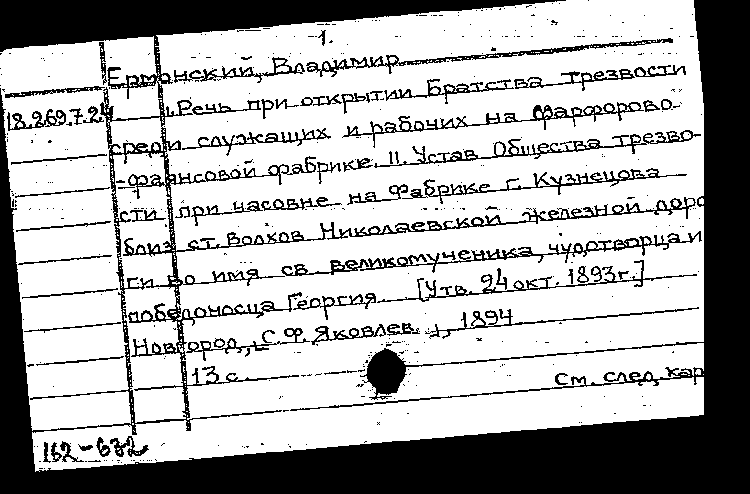 1.
Ермонский, Владимир
18.269.7.24 1. Речь при открытии Братства трезвости
среди служащих и рабочих на Фарфорово-
-фаянсовой фабрике. II. Устав Общества трезво-
сти при часовне на Фабрике Г. Кузнецова
близ ст. Волхов Николаевской железной доро
ги во имя св. великомученика, чудотворца и
победоносца Георгия. [Утв. 24 окт. 1893г.]
Новгород, С.Ф. Яковлев, 1894
13 с.
См. след. кар
162-632